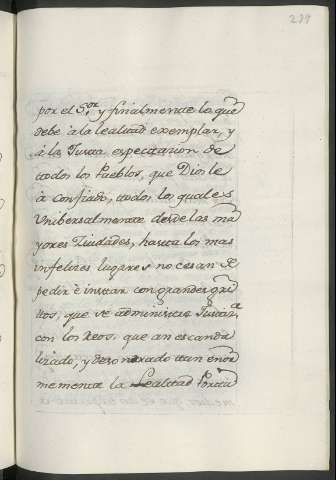 289
por el S.or y finalmente lo que
debe à la lealtad exemplar, y
à la Justa expectacion de
todos los Pueblos, que Dios le
à confiado, todos los quales
Unibersalmente desde las ma
yores Ciudades, hasta los mas
infelizes lugares no cesan de
pedir è instar con grandes gri
tos, que se administre Justiz.a
con los Reos, que an escanda
lizado, y desonrado tan enor
memente la Lealtad